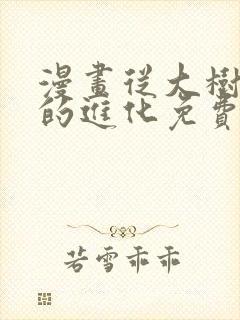 漫畫從大樹
的進化免費
若雪乖乖